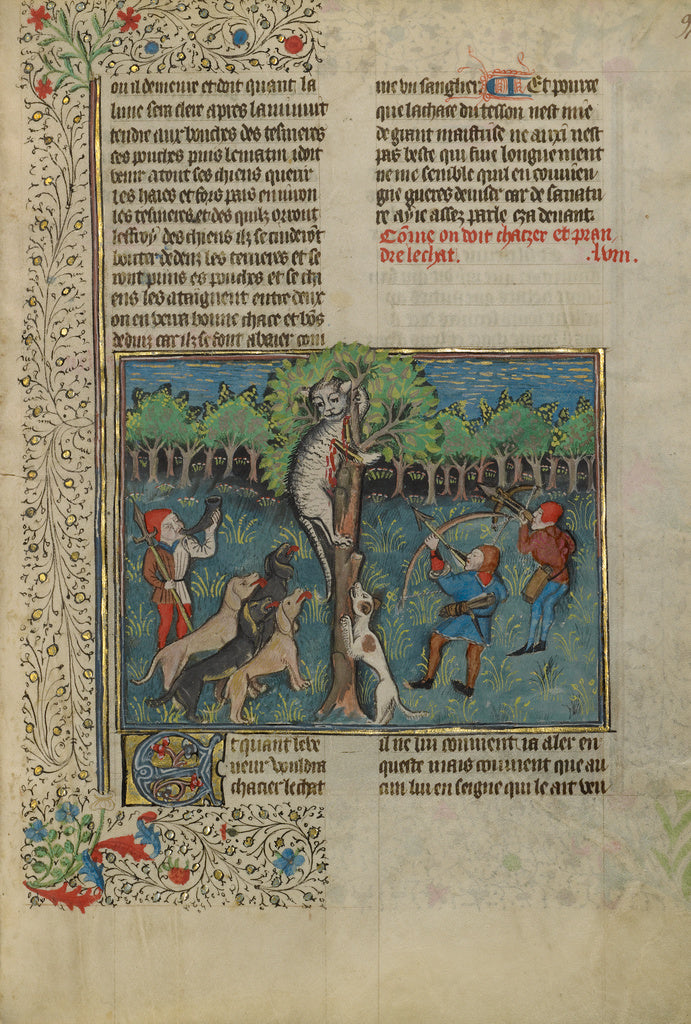 ou il demeure et doit quant la
lune sera clere apres la minuit
tendre aux bouches des tesnieres
ces pouches puis le matin doit
venir a tout ses chiens querir
les haies et fors pais environ
les tesnieres et des quilz orront
leffroy des chiens ilz se cuideront
bouter dedenz les tenieres et se
ront puins es pouches et se chi
ens les ataignent entre deux
on en verra bonne chace et bõs
deduiz car ilz se font abaier com
me un sanglier. Et pource
que la chace du tesson nest mie
de grant maistrise ne auxi nest
pas beste qui fuie longuement
ne me semble quil en couvien
gne gueres deviser car de sa natu
re ay ie assez parle cza devant.
Cõme on doit chacer et pran
dre le chat. .lviii.
Et quant le ve
neur vouldra
chacier le chat
il ne lui convient ia aler en
queste mais convient que au
cun lui enseigne qui le ait veu